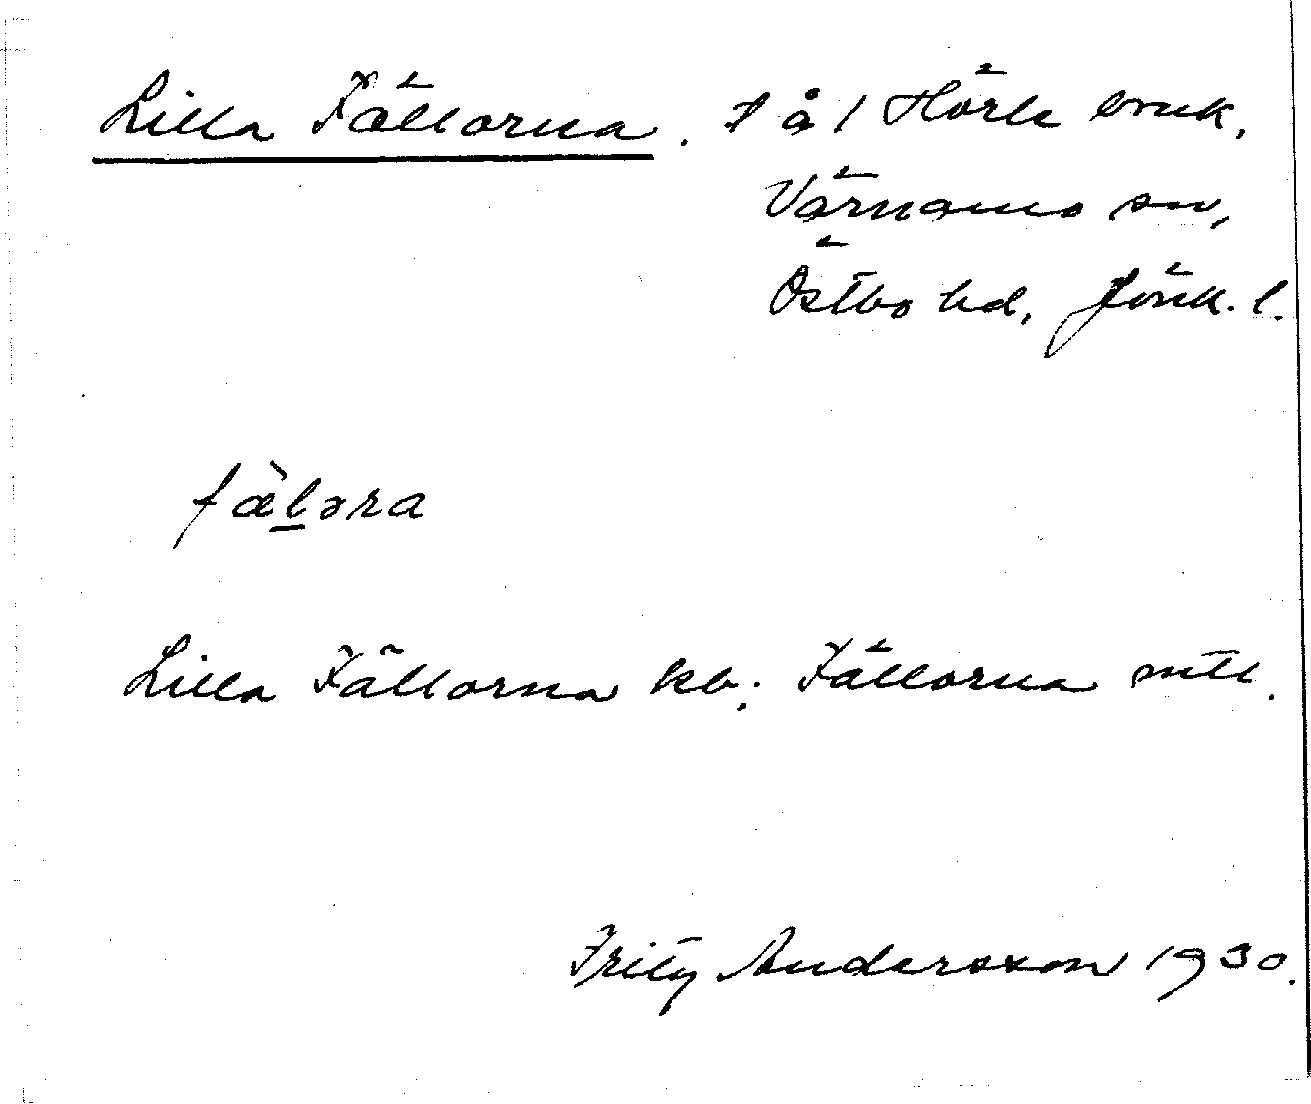 Lilla Fällorna. t å 1 Hörle bruk,
Värnamo sn,
Östbo hd, Jönk. l.
fäləra
Lilla Fällorna kb; Fällorna mtl.
Fritz Andersson 1930.